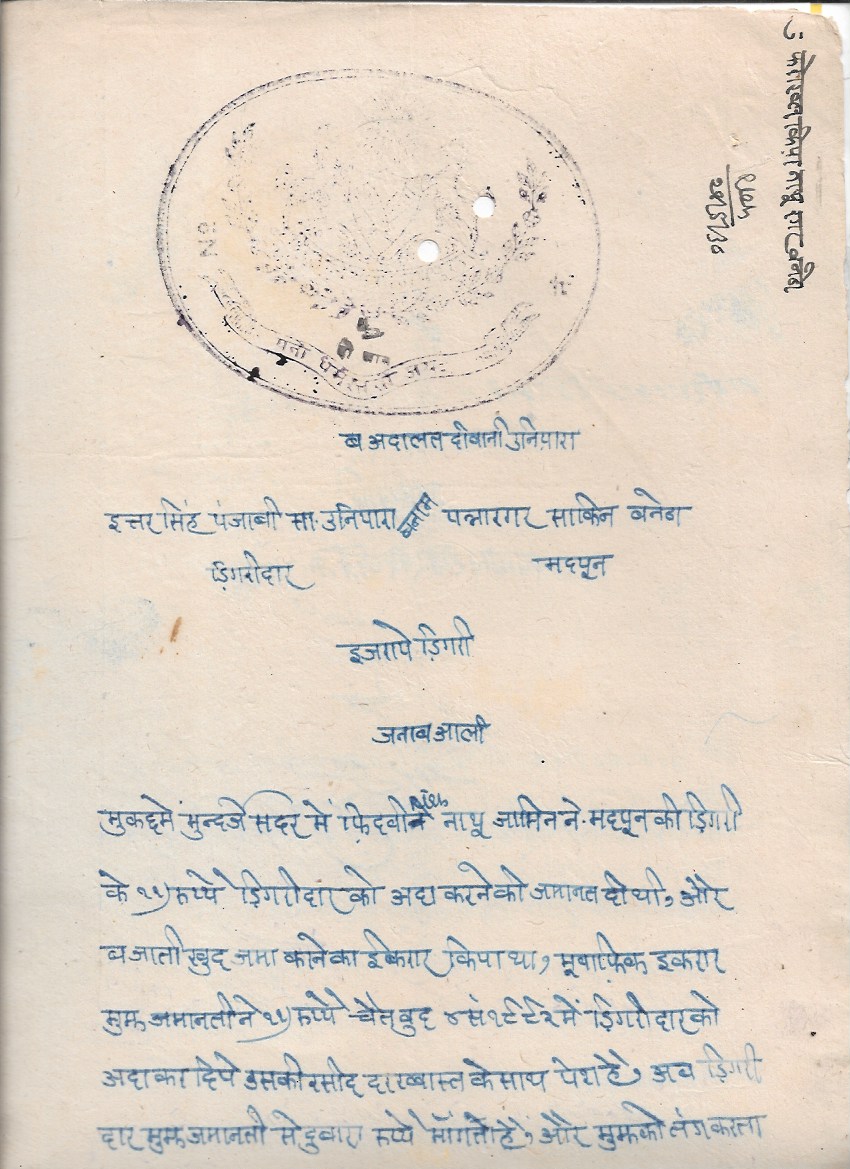 यतो धर्मस्ततो जयः
ब अदालत दीवानी उनियारा
इत्तरसिंह पंजाबी सा. उनियारा बनाम पन्नारगर साकिन बनेडा
डिगरीदार मदयून
इजराये डिगरी
जनाब आली
मुकद्दमे मुन्दर्जे सदर में फिदवी नाथू जामिन ने मदयून की डिगरी
के २२) रुप्ये डिगरीदार को अदा करने की जमानत दी थी, और
ब जाती खुद जमा कराने का ईकरार किया था, मूवाफिक इकरार
मुझ जमानती ने २२) रुप्ये चेत बुद ४ सं १९९२ में डिगरीदार को
अदा कर दिये उसकी रसीद दरख्वास्त के साथ पेश है, अब डिगरी
दार मुझ जमानती से दुबारा रुप्ये माँगते है, और मुझको तंग करता